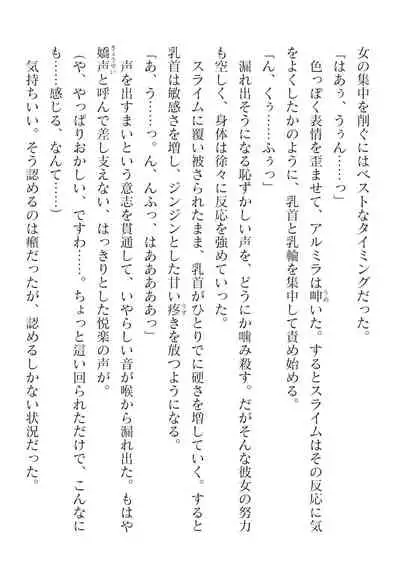 女の集中を削ぐにはベストなタイミングだった。
「はあぅ、うぅん……っ」
　色っぽく表情を歪ませて、アルミラは呻いた。するとスライムはその反応に気
をよくしたかのように、乳首と乳輪を集中して責め始める。
「ん、くぅ……ふぅっ」
　漏れ出そうになる恥ずかしい声を、どうにか噛み殺す。だがそんな彼女の努力
も空しく、身体は徐々に反応を強めていった。
　スライムに覆い被さられたまま、乳首がひとりでに硬さを増していく。すると
乳首は敏感さを増し、ジンジンとした甘い疼きを放つようになる。
「あ、う……っ。ん、んふっ、はああああっ」
　声を出すまいという意志を貫通して、いやらしい音が喉から漏れ出た。もはや
嬌声と呼んで差し支えない、はっきりとした悦楽の声が。
（や、やっぱりおかしい、ですわ……。ちょっと這い回られただけで、こんなに
も……感じる、なんて……）
　気持ちいい。そう認めるのは癪だったが、認めるしかない状況だった。